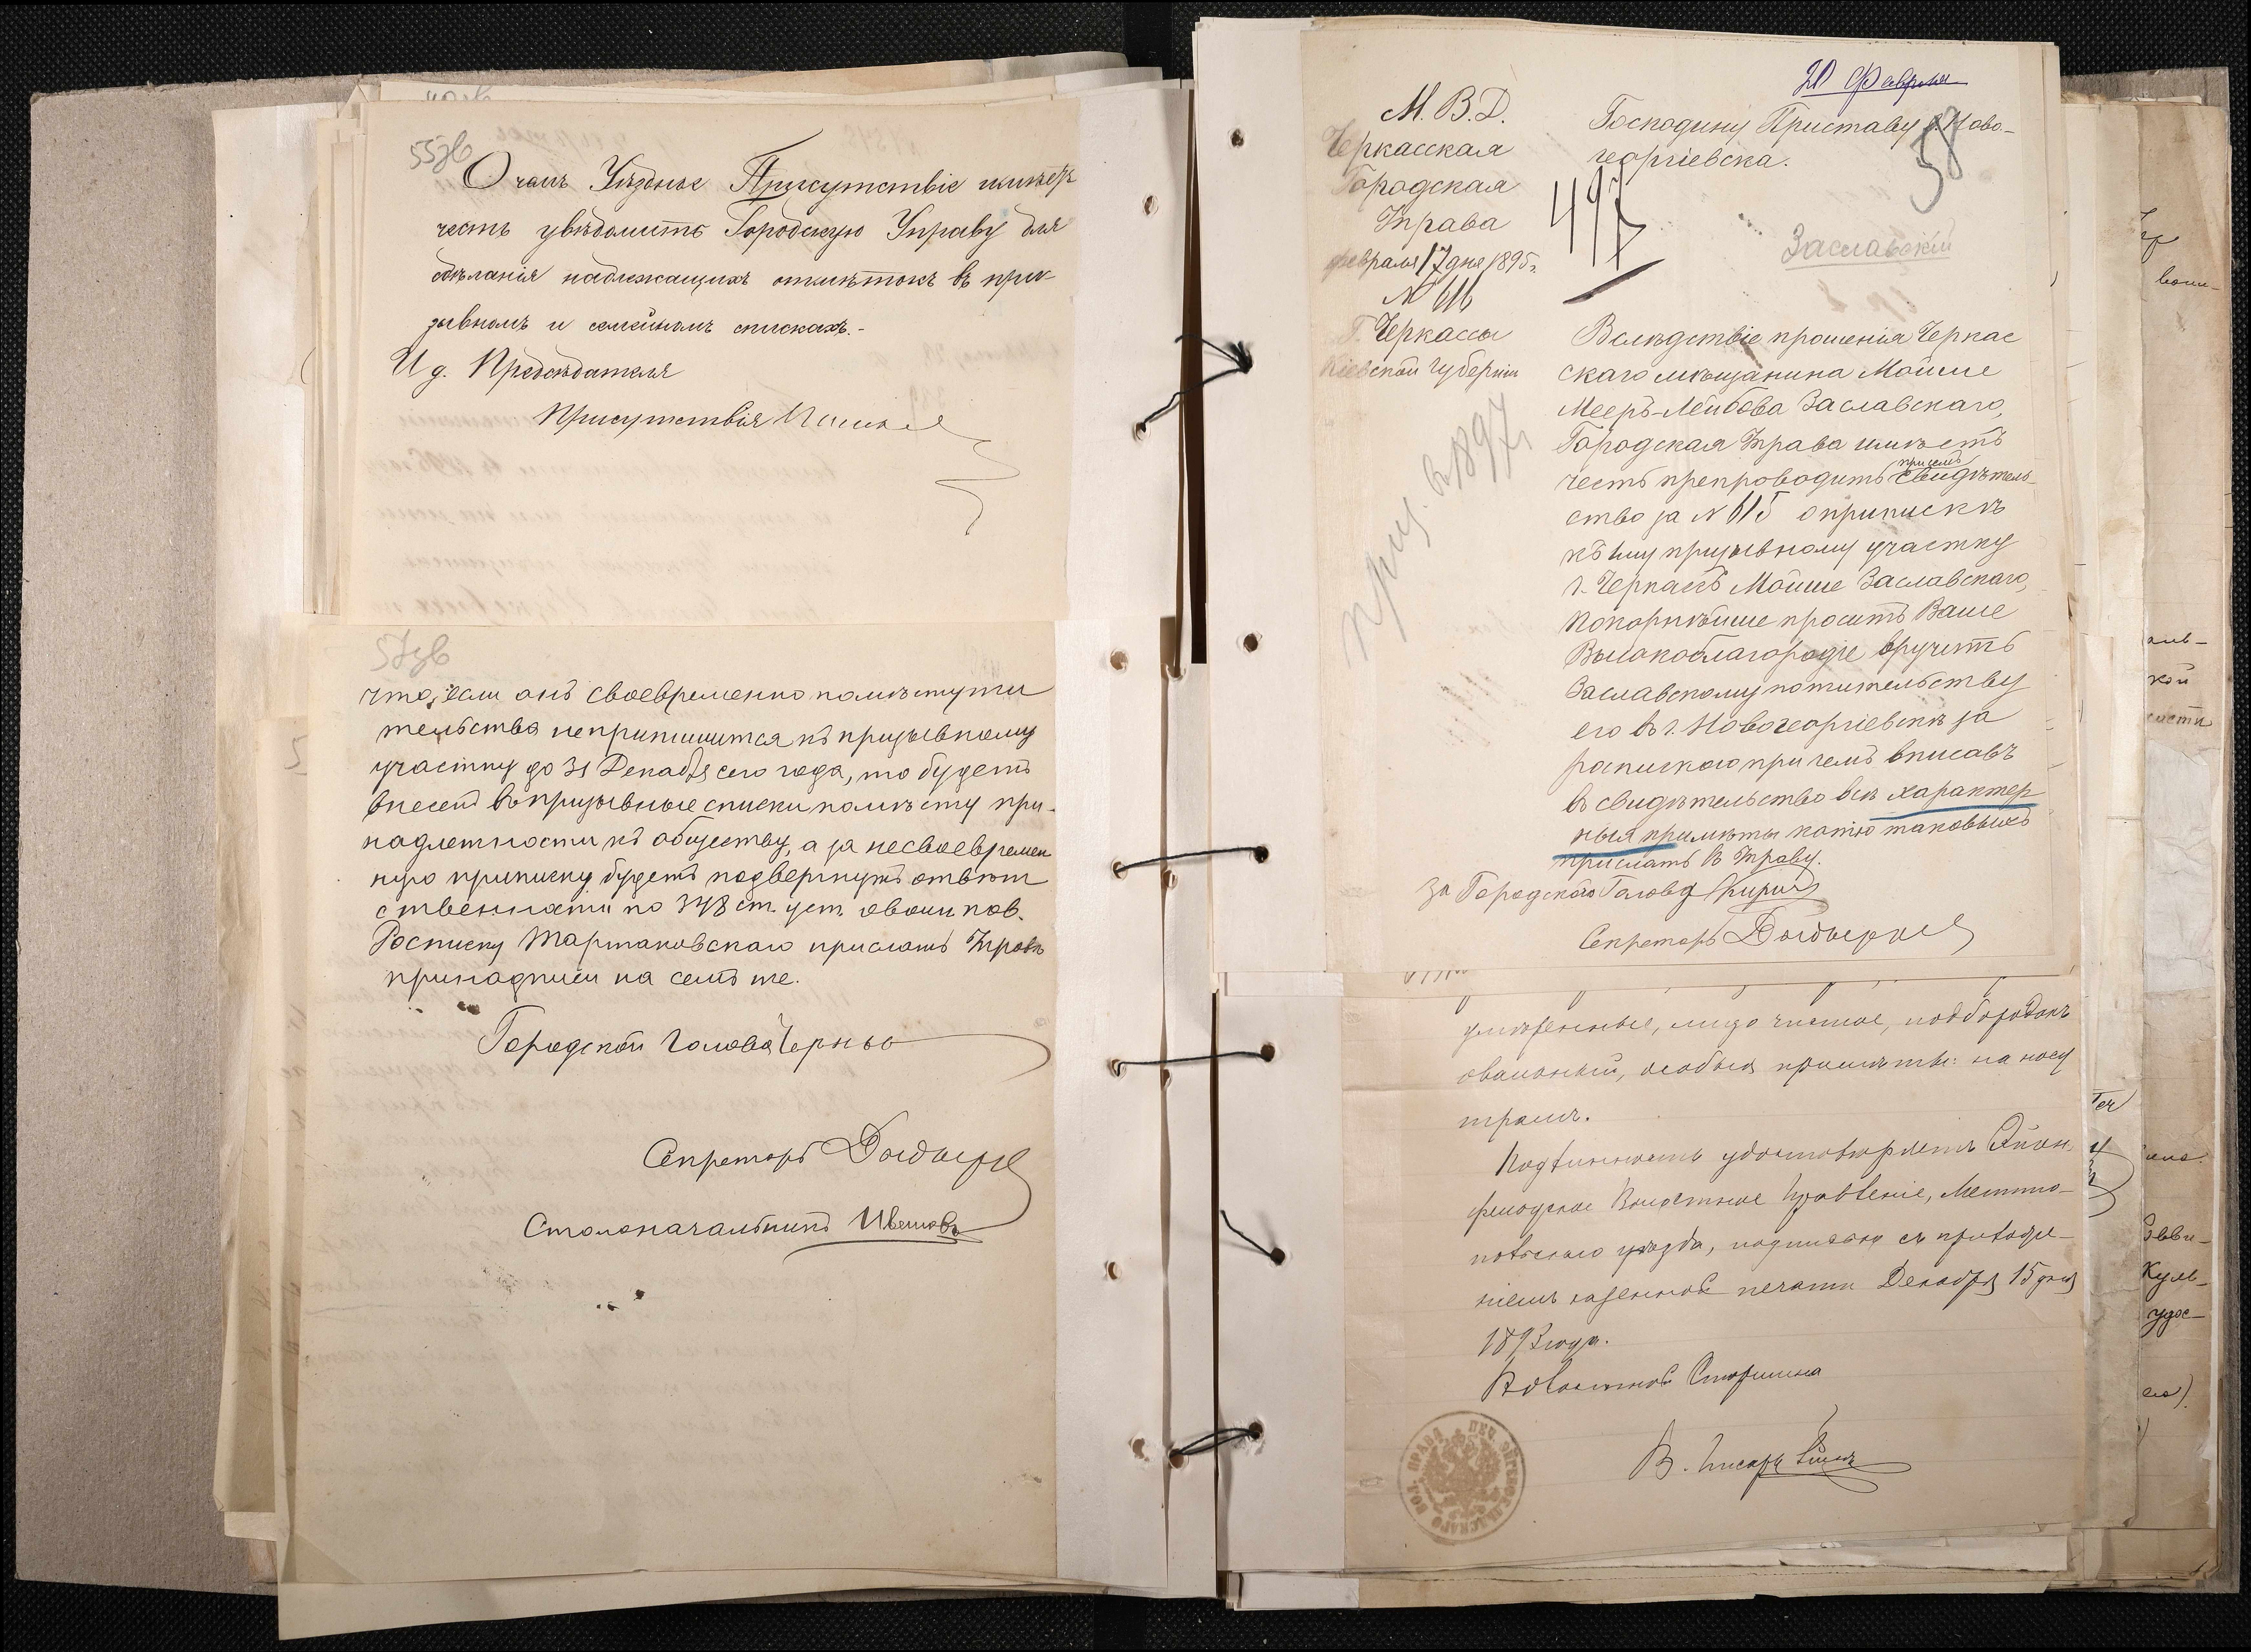 55зв
О чемъ Уѣздное Присутствіе имѣетъ
честь увѣдомить Городскую Управу для
сдѣланія надлежащихъ отмѣтокъ въ при-
зывномъ и семейномъ спискахъ.-
И д. Предсѣдателя
Присутствія
57зв
что, если онъ своевременно по мѣсту жи
тельства не припишится къ призывному
участку до 31 Декабря сего года, то будетъ
внесенъ въ призывные списки по мѣсту при-
надлежности къ обществу, а за несвоевремен
ную приписку будетъ подвергнутъ отвѣт
ственности по 348 ст. уст. о воин. пов.
Росписку Тартаковскаго прислать Управѣ
при надписи на семъ же.
Городской Голова
Секретарь
Столоначальникъ
20 Февраля
М. В. Д.
Черкасская
Городская
Управа
февраля 17 дня 1895 г.
№ 616
Г. Черкассы
Кіевской губерніи
Господину Приставу г. Ново-
георгіевска.
58
497
Заславскій
приз. въ 1897 г.
Вслѣдствіе прошенія Черкас
скаго мѣщанина Мойше
Мееръ-Лейбова Заславскаго,
Городская Управа имѣетъ
честь препроводить при семъ свидѣтель-
ство за № 615 о припискѣ
къ ему призывному участку
г. Черкассъ Мойше Заславскаго,
покорнѣйше проситъ Ваше
Высокоблагородіе вручить
Заславскому по жительству
его въ г. Новогеоргіевскѣ за
роспискою при чемъ вписавъ
въ свидѣтельство всѣ характер
ныя примѣты копію таковыхъ
прислать въ Управу.
За Городскаго Голову
Секретарь
умѣренные, лицо чистое, подбородокъ
овальный, особыя примѣты: на носу
шрамъ.
Подлинность удостовѣряетъ Эйген-
фельдское Волостное Правленіе, Мелито-
польскаго уѣзда, подписью съ приложе-
ніемъ казенной печати Декабря 15 дня
1893 года.
Волостной Старшина
В. Писарь